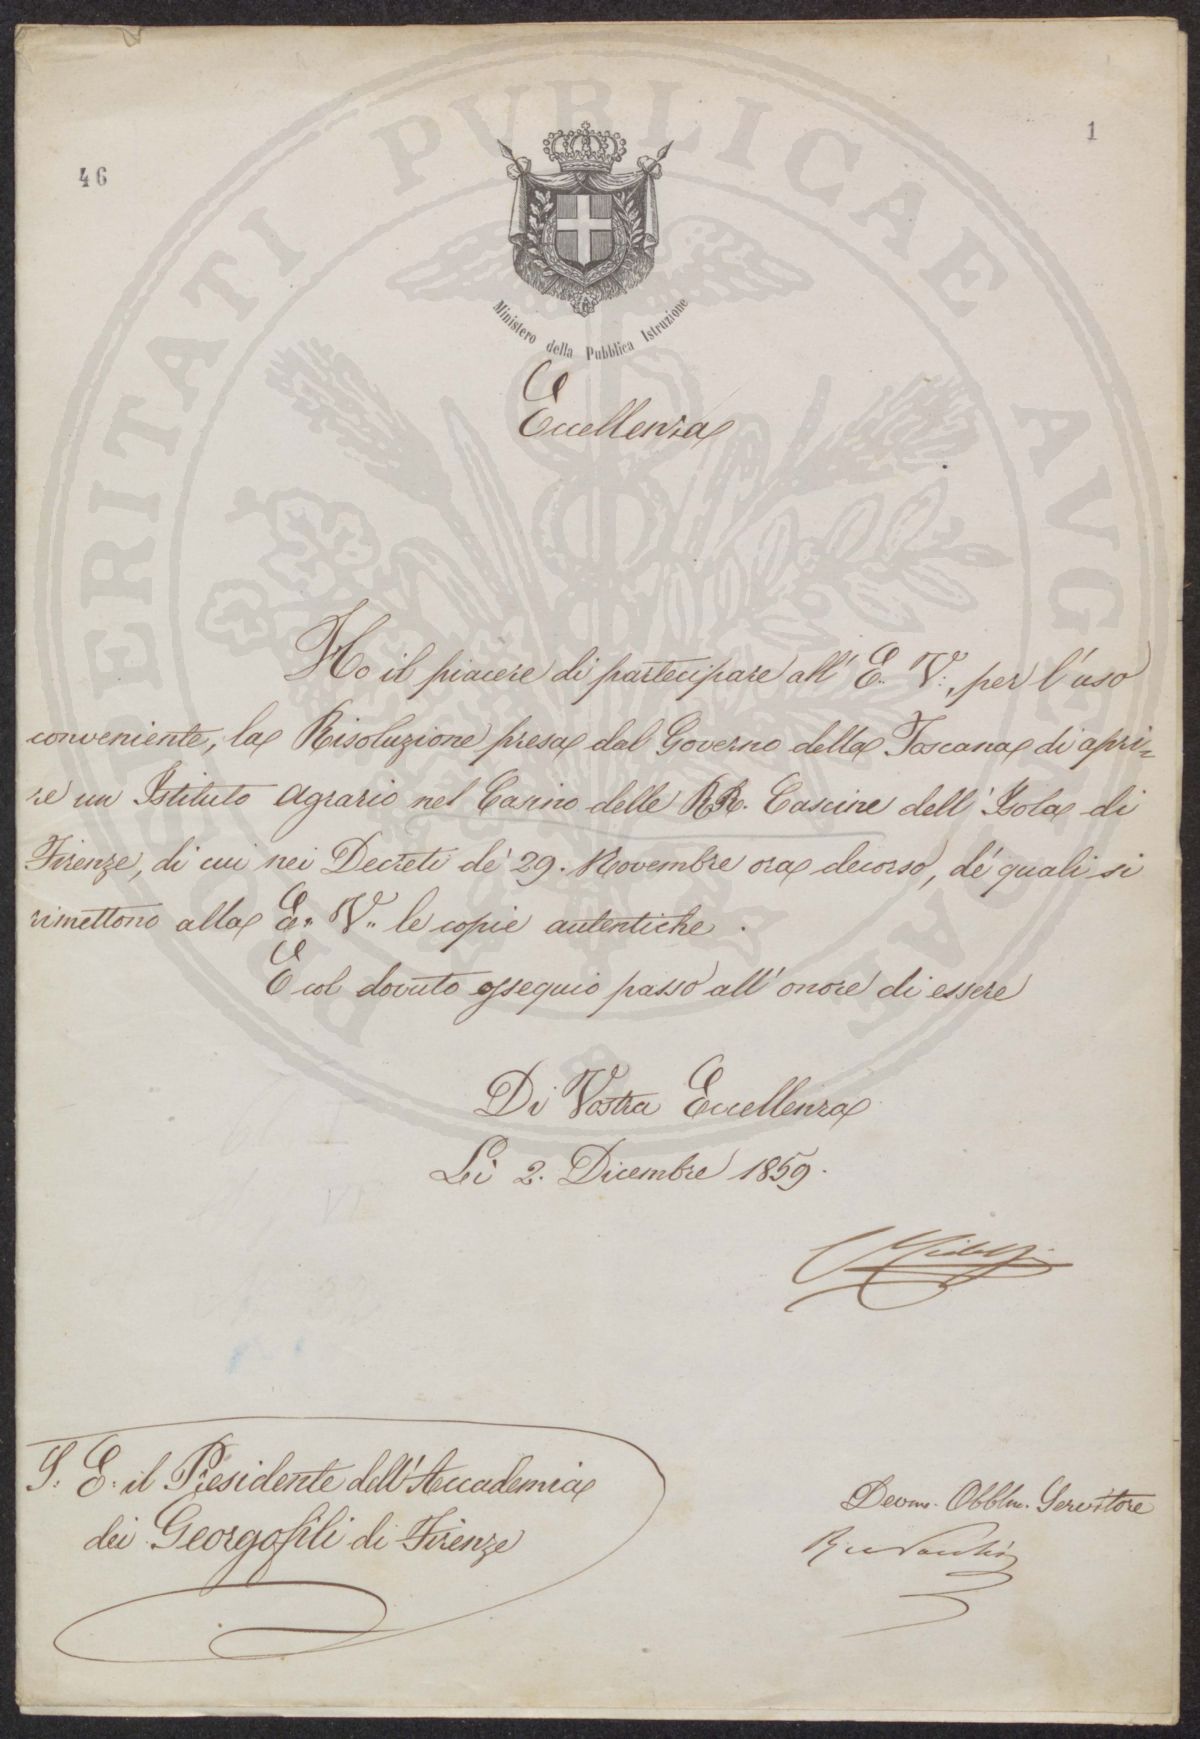 PROSPERITATI PUBLICAE AVGENDAE
46
1
Ministero della Pubblica Istruzione
Eccellenza
Ho il piacere di partecipare all' E. V., per l'uso
conveniente, la Risoluzione presa dal Governo della Toscana di apri=
re un Istituto Agrario nel Casino delle RR. Cascine dell' Isola di
Firenze, di cui nei Decreti de' 29. Novembre ora decorso, de' quali si
rimettono alla E. V. le copie autentiche.
E col dovuto ossequio passo all' onore di essere
Di Vostra Eccellenza
Li 2. Dicembre 1859.
S. E. il Presidente dell' Accademia
dei Georgofili di Firenze
Devmo. Obblmo. Servitore